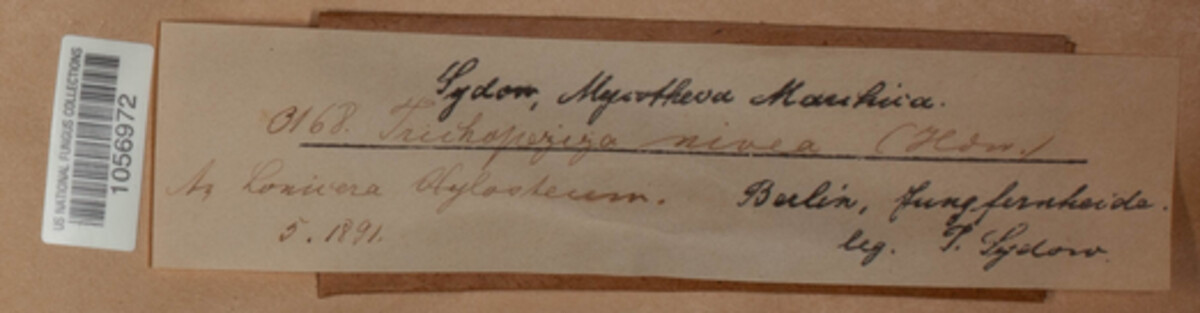 US NATIONAL FUNGUS COLLECTIONS
1056972
Sydow, Mycotheca Marchica.
3168. Trichopeziza nivea (Hdw.)
An Lonicera Xylosteum. Berlin, Jungfernheide.
5. 1891. leg. P. Sydow.